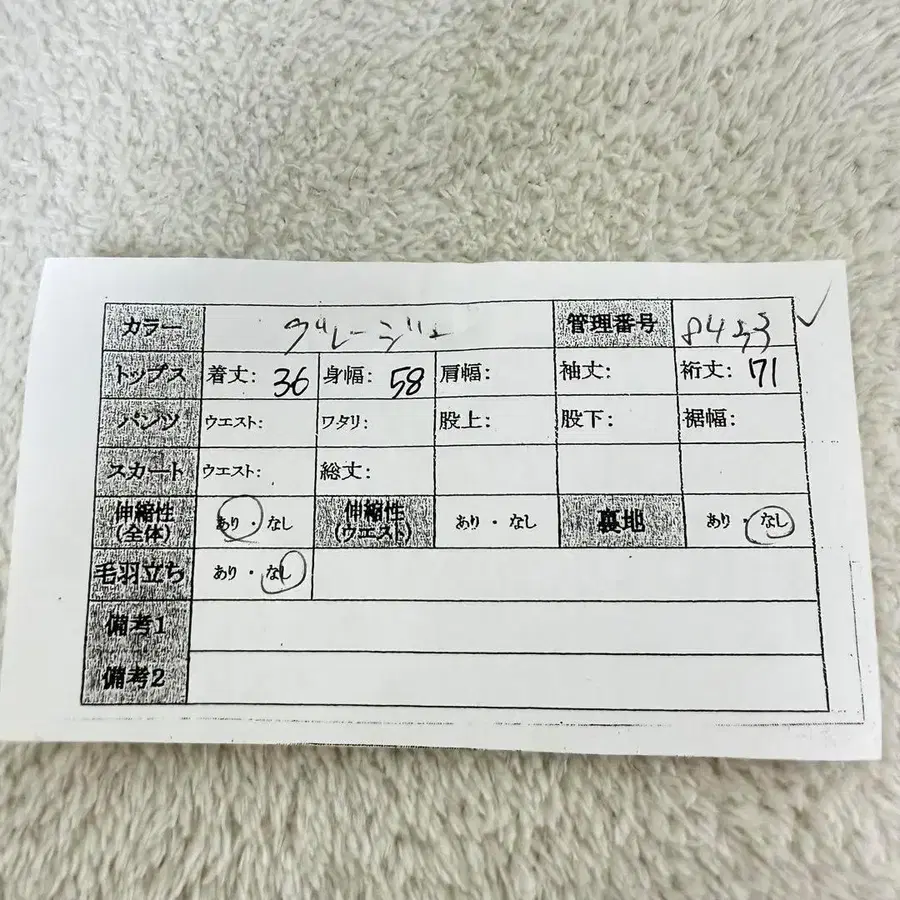 カラー グレージュ 管理番号 8453
トップス 着丈: 36 身幅: 58 肩幅: 袖丈: 裄丈: 71
パンツ ウエスト: ワタリ: 股上: 股下: 裾幅:
スカート ウエスト: 総丈:
伸縮性 (全体) あり・なし 伸縮性 (ウエスト) あり・なし 裏地 あり・なし
毛羽立ち あり・なし
備考1
備考2